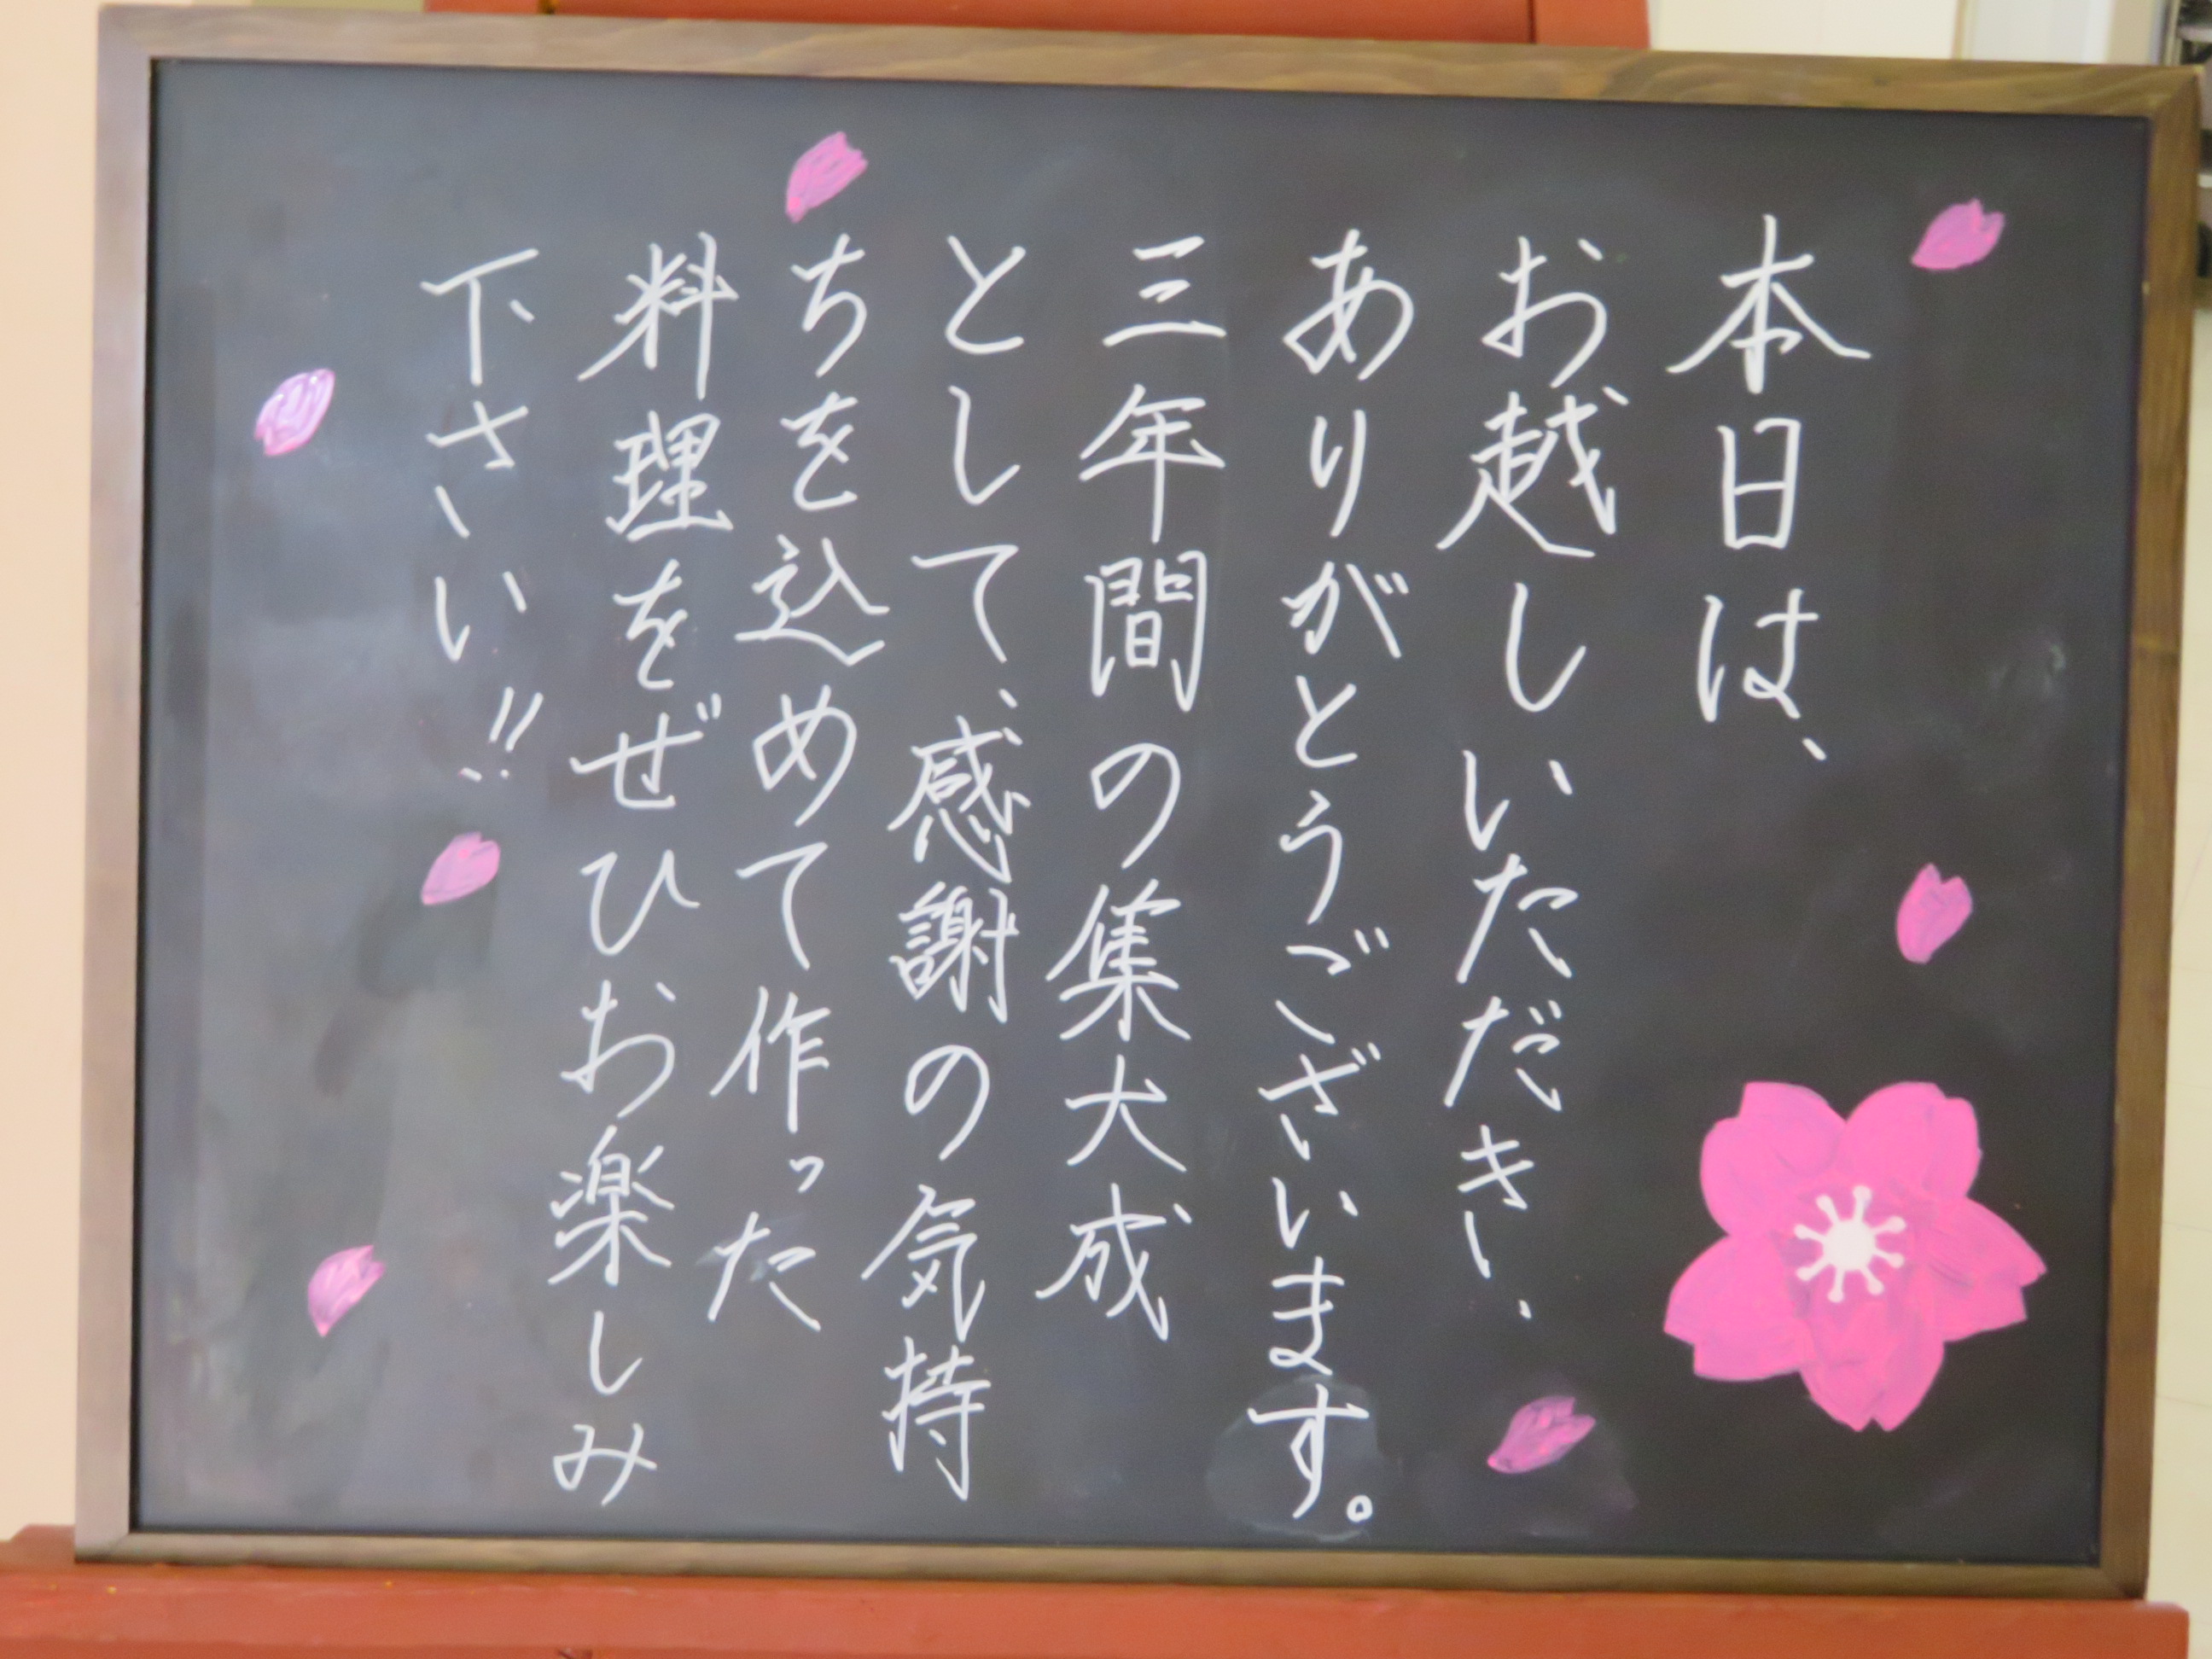 本日は、
お越しいただき、
ありがとうございます。
三年間の集大成
として、感謝の気持
ちを込めて作った
料理をぜひお楽しみ
下さい!!